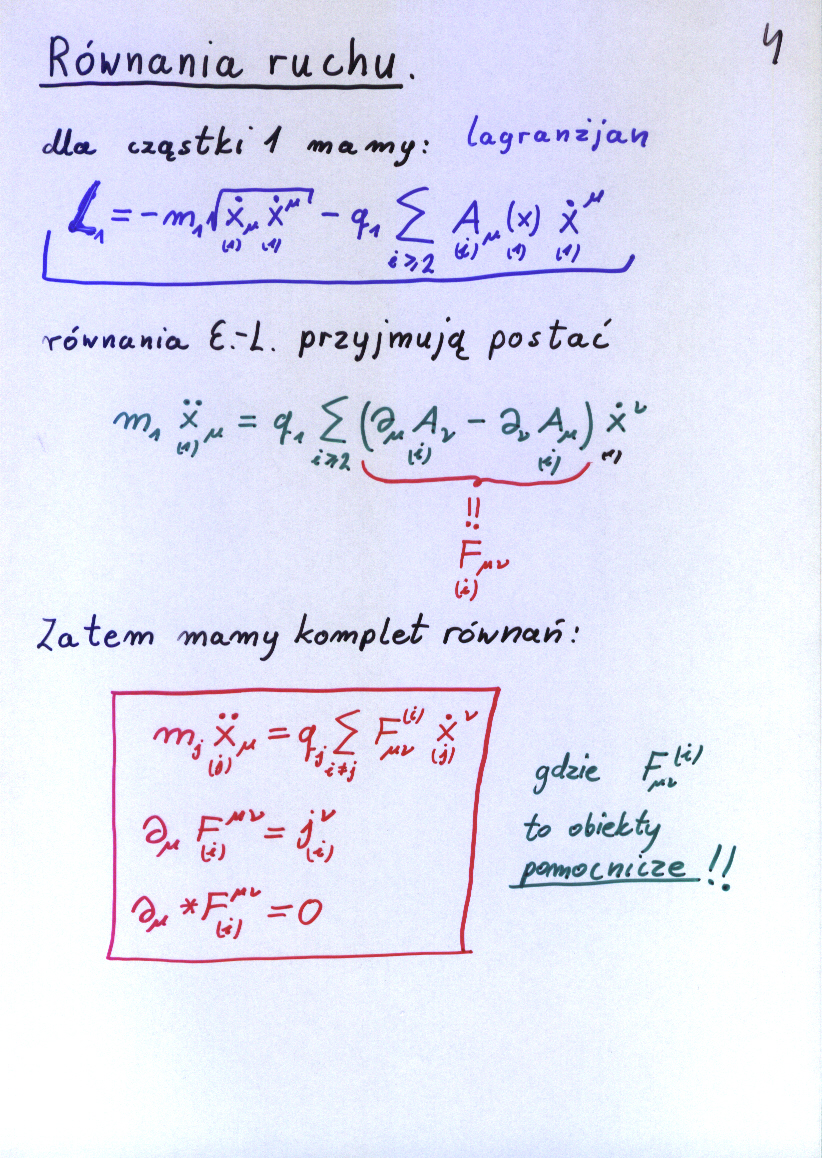 4
Równania ruchu.
dla cząstki 1 mamy: lagranżjan
L₁ = - m₁ √(ẋ_μ(1) ẋ^μ(1)) - q₁ ∑_{i≥2} A_μ(i) (x(1)) ẋ^μ(1)
równania E.-L. przyjmują postać
m₁ ẍ_μ(1) = q₁ ∑_{i≥2} (∂_μ A_ν(i) - ∂_ν A_μ(i)) ẋ^ν(1)
!!
F_μν(i)
Zatem mamy komplet równań:
m_j ẍ_μ(j) = q_j ∑_{i≠j} F_μν^(i) ẋ^ν(j)
∂_μ F^μν(i) = j^ν(i)
∂_μ *F^μν(i) = 0
gdzie F_μν^(i)
to obiekty
pomocnicze !!